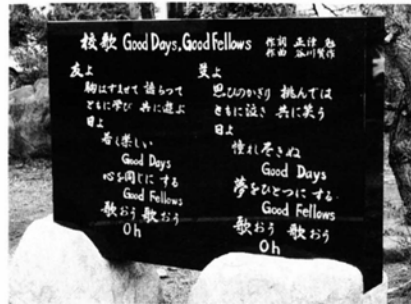 校歌 Good Days, Good Fellows
作詞 正津 勉
作曲 谷川賢作
友よ
胸はずませて 語らって
ともに学び 共に遊ぶ
日よ
楽しい
Good Days
心を同じにする
Good Fellows
歌おう 歌おう
Oh
思ひのかぎり 挑んでは
ともに泣き 共に笑う
日よ
憧れ尽きぬ
Good Days
夢をひとつにする
Good Fellows
歌おう 歌おう
Oh